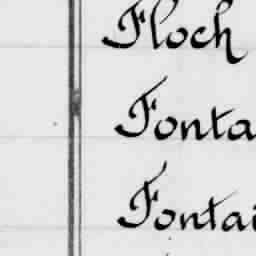 Floch
Fonta
Fontai